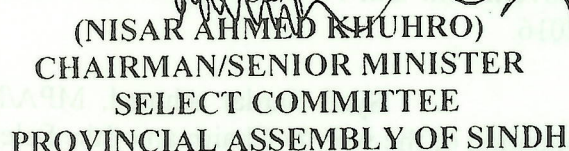 (NISAR AHMED KHUHRO)
CHAIRMAN/SENIOR MINISTER
SELECT COMMITTEE
PROVINCIAL ASSEMBLY OF SINDH